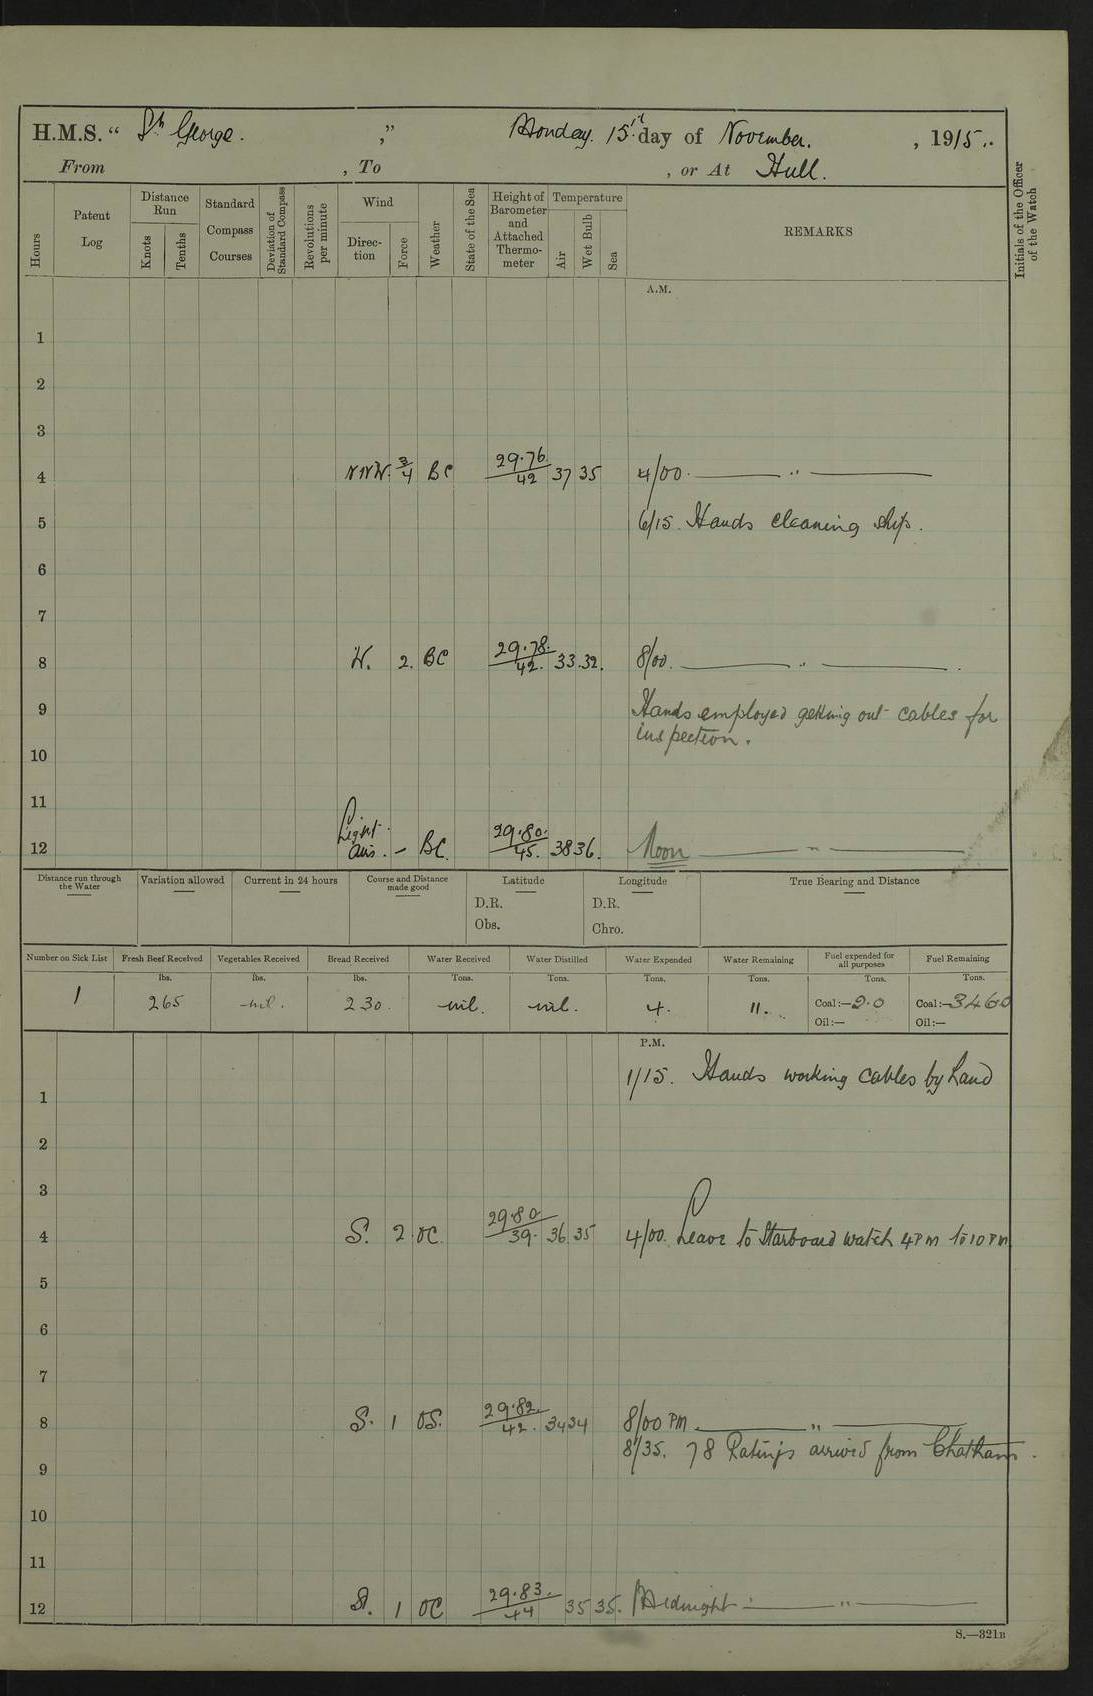 H.M.S. “ St George. ,” Monday. 15th day of November. , 1915.
From , To , or At Hull.
Hours Patent Log Distance Run Knots Tenths Standard Compass Courses Deviation of Standard Compass Revolutions per minute Wind Direc-tion Force Weather State of the Sea Height of Barometer and Attached Thermo-meter Temperature Air Wet Bulb Sea REMARKS Initials of the Officer of the Watch
A.M.
1
2
3
4 NNW. 3/4 BC 29.76/42 37 35 4/00 ——— " ———
5 6/15. Hands cleaning ship.
6
7
8 W. 2. BC 29.78./42. 33. 32. 8/00. ——— " ———.
9 Hands employed getting out cables for
inspection.
10
11
12 Light airs. - BC. 29.80./45. 38 36. Noon ——— " ———
Distance run through the Water Variation allowed Current in 24 hours Course and Distance made good Latitude Longitude True Bearing and Distance
D.R. D.R.
Obs. Chro.
Number on Sick List Fresh Beef Received Vegetables Received Bread Received Water Received Water Distilled Water Expended Water Remaining Fuel expended for all purposes Fuel Remaining
lbs. lbs. lbs. Tons. Tons. Tons. Tons. Tons. Tons.
1 265 nil. 230. nil. nil. 4. 11. Coal:—20 Coal:—3460
Oil:— Oil:—
P.M.
1/15. Hands working cables by hand
1
2
3
4 S. 2 OC. 29.80/39. 36 35 4/00. Leave to Starboard watch 4 PM to 10 PM
5
6
7
8 S. 1 OS. 29.82./42. 34 34 8/00 PM. ——— " ———
8/35. 78 Ratings arrived from Chatham.
9
10
11
12 S. 1 OC 29.83./44 35 35. Midnight ——— " ———
S.—321B